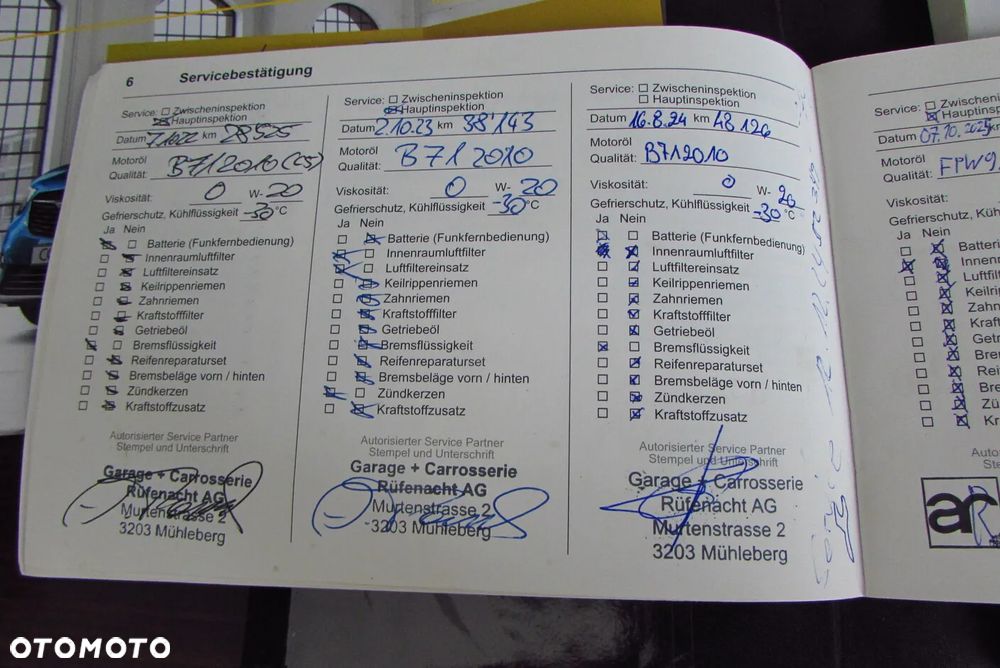 6 Servicebestätigung
Service: Zwischeninspektion
Hauptinspektion
Datum 7.10.22 km 28525
Motoröl
Qualität: B71 2010 (CS)
Viskosität: 0 W- 20
Gefrierschutz, Kühlflüssigkeit -30 °C
Ja Nein
Batterie (Funkfernbedienung)
Innenraumluftfilter
Luftfiltereinsatz
Keilrippenriemen
Zahnriemen
Kraftstofffilter
Getriebeöl
Bremsflüssigkeit
Reifenreparaturset
Bremsbeläge vorn / hinten
Zündkerzen
Kraftstoffzusatz
Autorisierter Service Partner
Stempel und Unterschrift
Garage + Carrosserie
Rüfenacht AG
Murtenstrasse 2
3203 Mühleberg
Service: Zwischeninspektion
Hauptinspektion
Datum 2.10.23 km 38'143
Motoröl
Qualität: B71 2010
Viskosität: 0 W- 20
Gefrierschutz, Kühlflüssigkeit -30 °C
Ja Nein
Batterie (Funkfernbedienung)
Innenraumluftfilter
Luftfiltereinsatz
Keilrippenriemen
Zahnriemen
Kraftstofffilter
Getriebeöl
Bremsflüssigkeit
Reifenreparaturset
Bremsbeläge vorn / hinten
Zündkerzen
Kraftstoffzusatz
Autorisierter Service Partner
Stempel und Unterschrift
Garage + Carrosserie
Rüfenacht AG
Murtenstrasse 2
3203 Mühleberg
Service: Zwischeninspektion
Hauptinspektion
Datum 16.8.24 km 48126
Motoröl
Qualität: B71 2010
Viskosität: 0 W- 20
Gefrierschutz, Kühlflüssigkeit -30 °C
Ja Nein
Batterie (Funkfernbedienung)
Innenraumluftfilter
Luftfiltereinsatz
Keilrippenriemen
Zahnriemen
Kraftstofffilter
Getriebeöl
Bremsflüssigkeit
Reifenreparaturset
Bremsbeläge vorn / hinten
Zündkerzen
Kraftstoffzusatz
Autorisierter Service Partner
Stempel und Unterschrift
Garage + Carrosserie
Rüfenacht AG
Murtenstrasse 2
3203 Mühleberg
Service: Zwischenin
Hauptinspe
Datum 07.10.2025
Motoröl
Qualität: FPW9
Viskosität:
Gefrierschutz, Kühlf
Ja Nein
Batteri
Innen
Luftfil
Keilri
Zahn
Kraft
Getr
Bre
Rei
Bre
Zü
Kr
Auto
St
ar
OTOMOTO